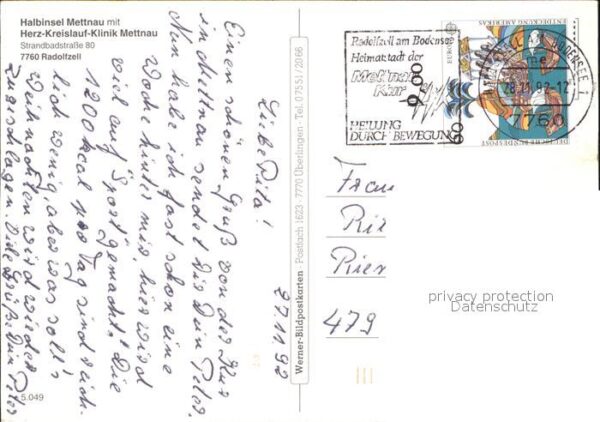 Halbinsel Mettnau mit
Herz-Kreislauf-Klinik Mettnau
Strandbadstraße 80
7760 Radolfzell
27.11.92
Liebe Rita!
Einen schönen Gruß von der Kur
in Mettnau sendet Dir Dein Peter.
Nun habe ich fast schon eine
Woche hinter mir, hier wird
viel auf Sport gemacht. Die
1200 kcal pro Tag sind reich-
lich wenig, aber was soll's
Weihnachten wird wieder
zugeschlagen. Viele Grüße Dein Peter
5.049
Werner-Bildpostkarten · Postfach 1623 · 7770 Überlingen · Tel. 07551/2066
Radolfzell am Bodensee
Heimatstadt der
Mettnau
Kur
HEILUNG
DURCH BEWEGUNG
EUROPA
60
ENTDECKUNG AMERIKAS
DEUTSCHE BUNDESPOST
28.11.92-12
7760
Frau
Rit
Rien
479
privacy protection
Datenschutz